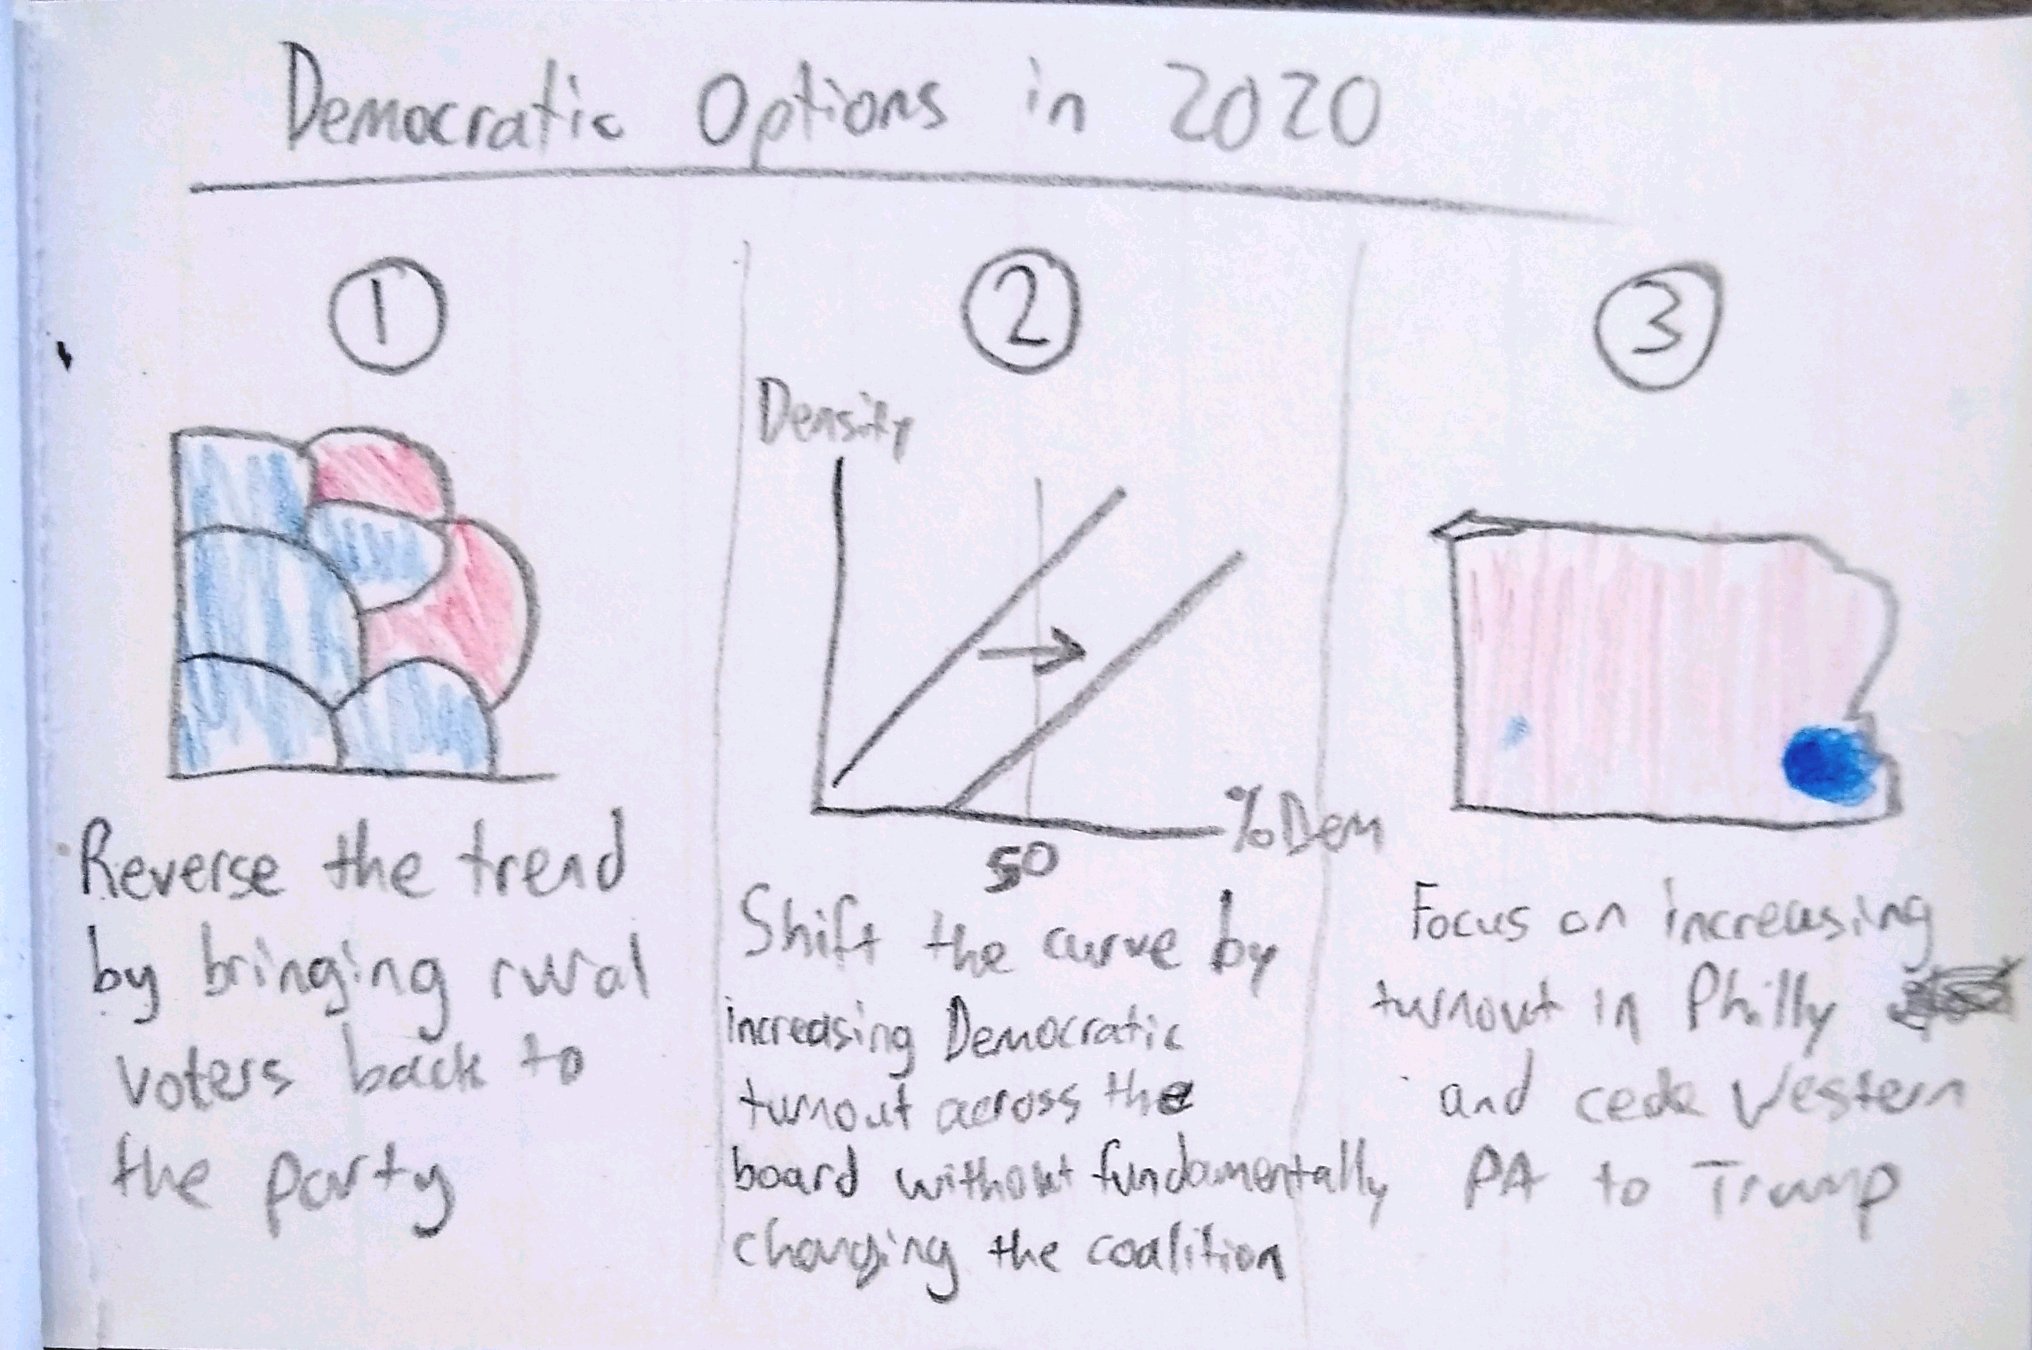 Democratic Options in 2020
1
Reverse the trend
by bringing rural
voters back to
the party
2
Density
%Dem
50
Shift the curve by
increasing Democratic
turnout across the
board without fundamentally
changing the coalition
3
Focus on increasing
turnout in Philly
and cede Western
PA to Trump